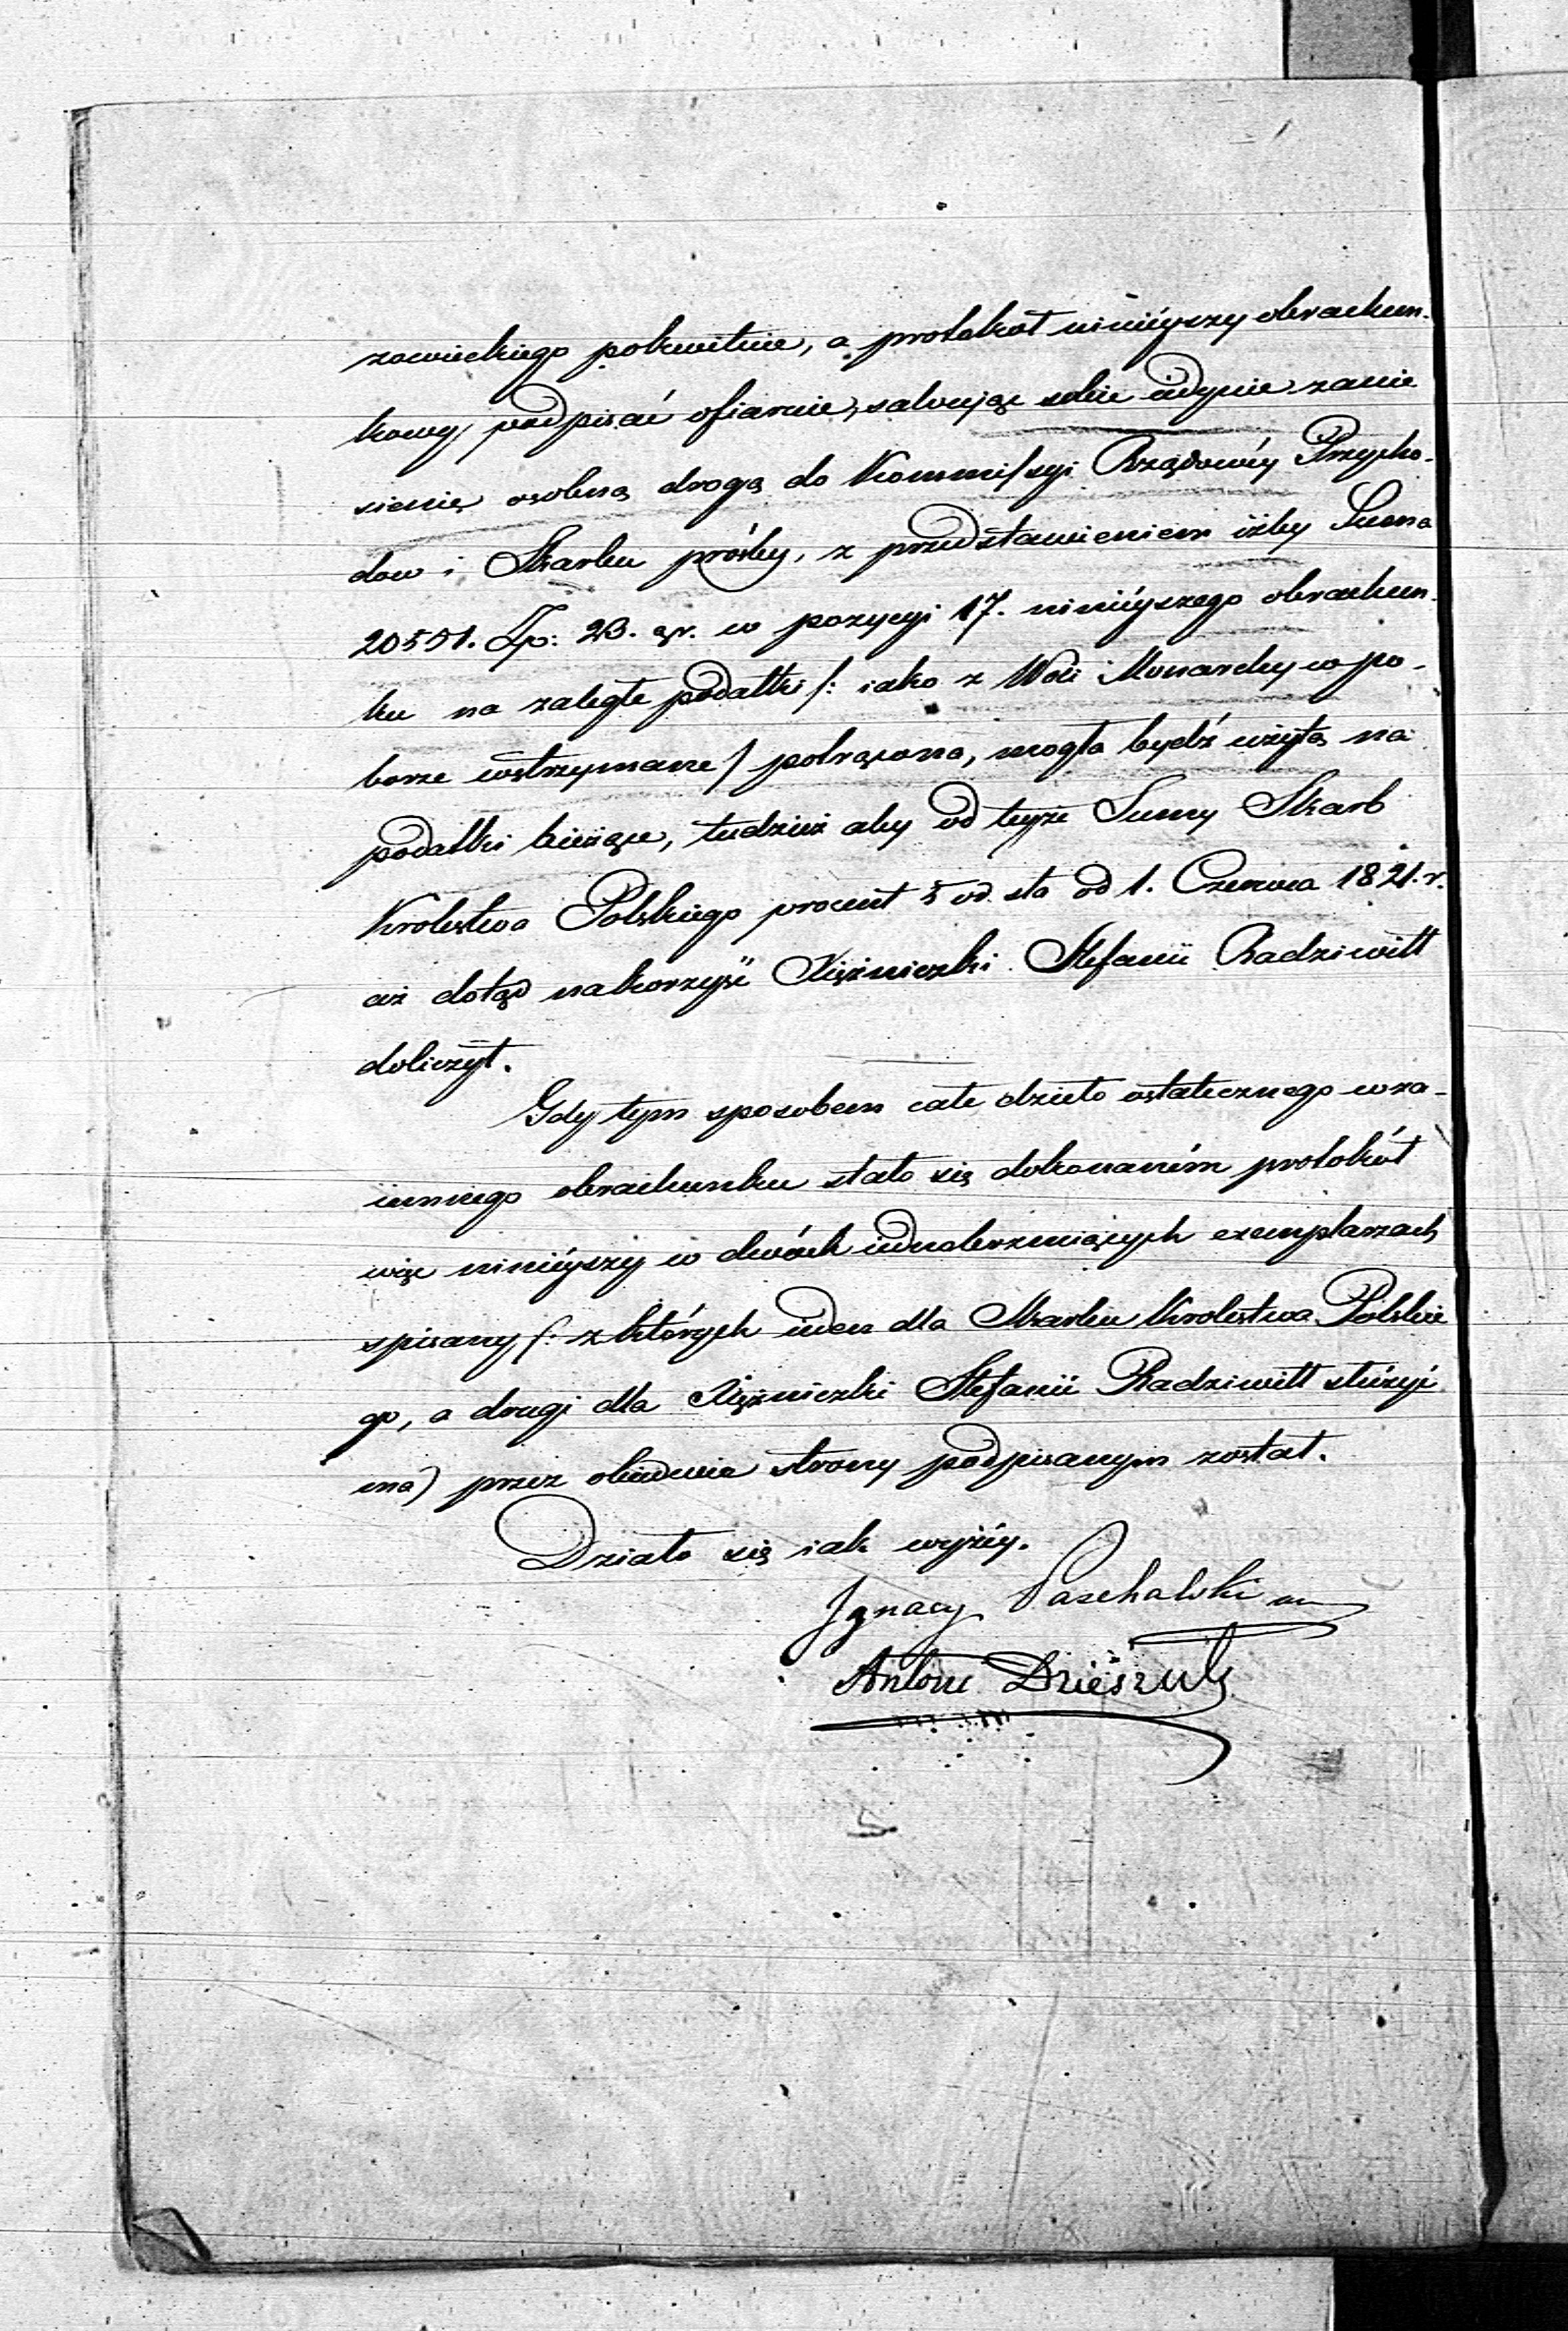 zowieckiego pokwituie, a protokoł ninieyszy obrachun-
kowy podpisać ofiaruie, salvując sobie iedynie zanie
sienie osobną drogą do Kommissyi Rządowéy Przycho-
dow i Skarbu prośby, z przedstawieniem iżby Suma
Zp: 23. gr. w pozycyi 17. ninieyszego obrachun-
ku na zaległe podatki /: iako z Woli Monarchy w po-
borze wstrzymane / potrącona, mogła bydź użytą na
podatki bieżące, tudzież aby od teyże Sumy Skarb
Krolestwa Polskiego procent 5 od sta od 1. Czerwca 1821. r.
aż dotąd na korzyść Xiężniczki Stefanii Radziwiłł
doliczył.
Gdy tym sposobem całe dzieło ostatecznego wza-
iemnego obrachunku stało się dokonaném protokół
więc ninieyszy w dwóch iednobrzmiących exemplarzach
spisany /: z których ieden dla Skarbu Krolestwa Polskie
go, a drugi dla Xiężniczki Stefanii Radziwiłł służyć
ma) przez obiedwie strony podpisanym został.
Działo się iak wyżéy.
Ignacy Paschalski
Antoni